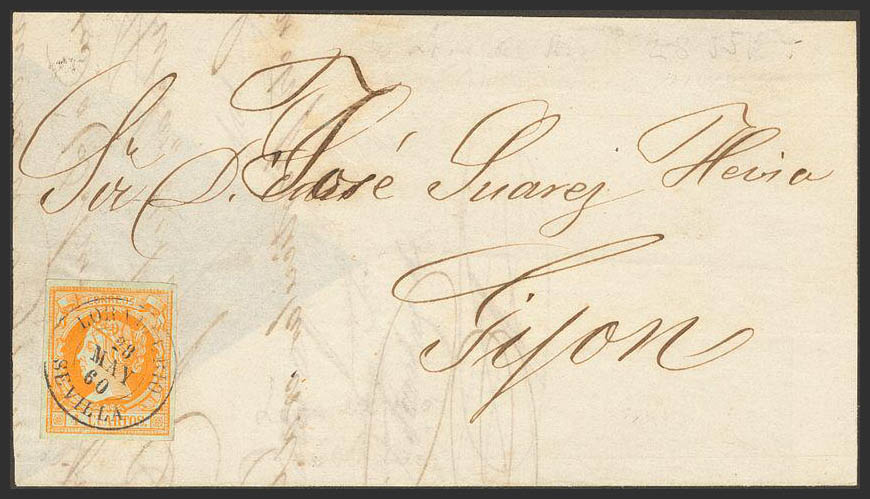 Sr. D. José Suarez Hevia
Gijon
CORREOS
28
MAY
60
SEVILLA
CUARTOS.